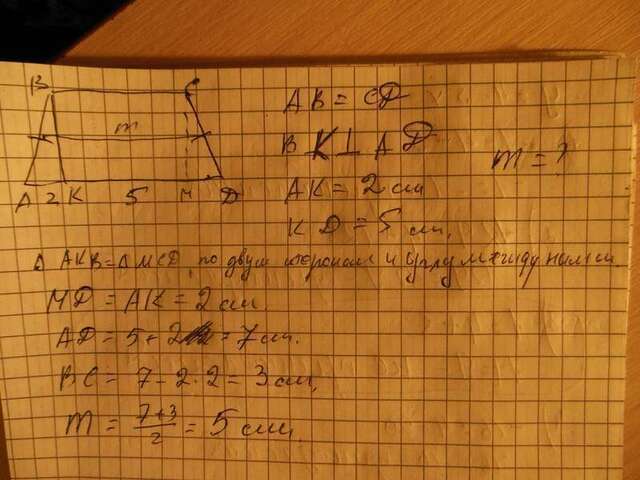 B C
m
A 2 K 5 M D
AB = CD
BK ⊥ AD
m = ?
AK = 2 см
KD = 5 см.
Δ AKB = Δ MCD, по двум сторонам и углу между ними
MD = AK = 2 см.
AD = 5 + 2 = 7 см.
BC = 7 - 2·2 = 3 см,
m = \frac{7+3}{2} = 5 см.